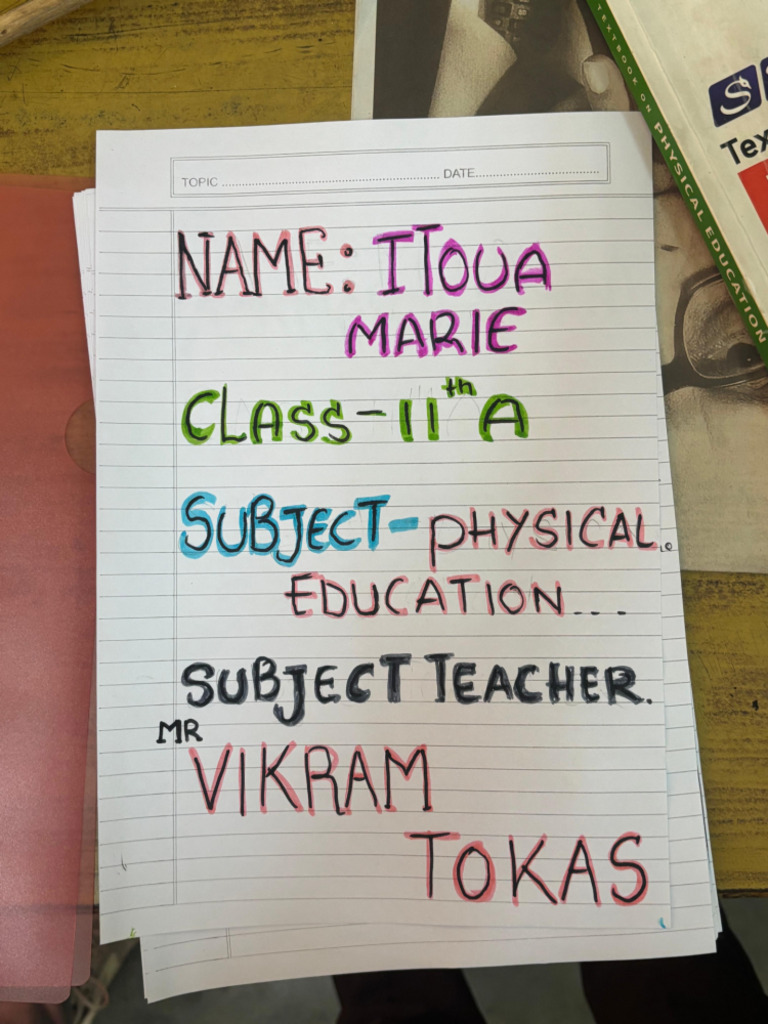 TOPIC ........................ DATE........................
NAME: ITOUA
MARIE
CLASS-11th A
SUBJECT- PHYSICAL.
EDUCATION...
SUBJECT TEACHER.
MR
VIKRAM
TOKAS
TEXTBOOK ON PHYSICAL EDUCATION
S